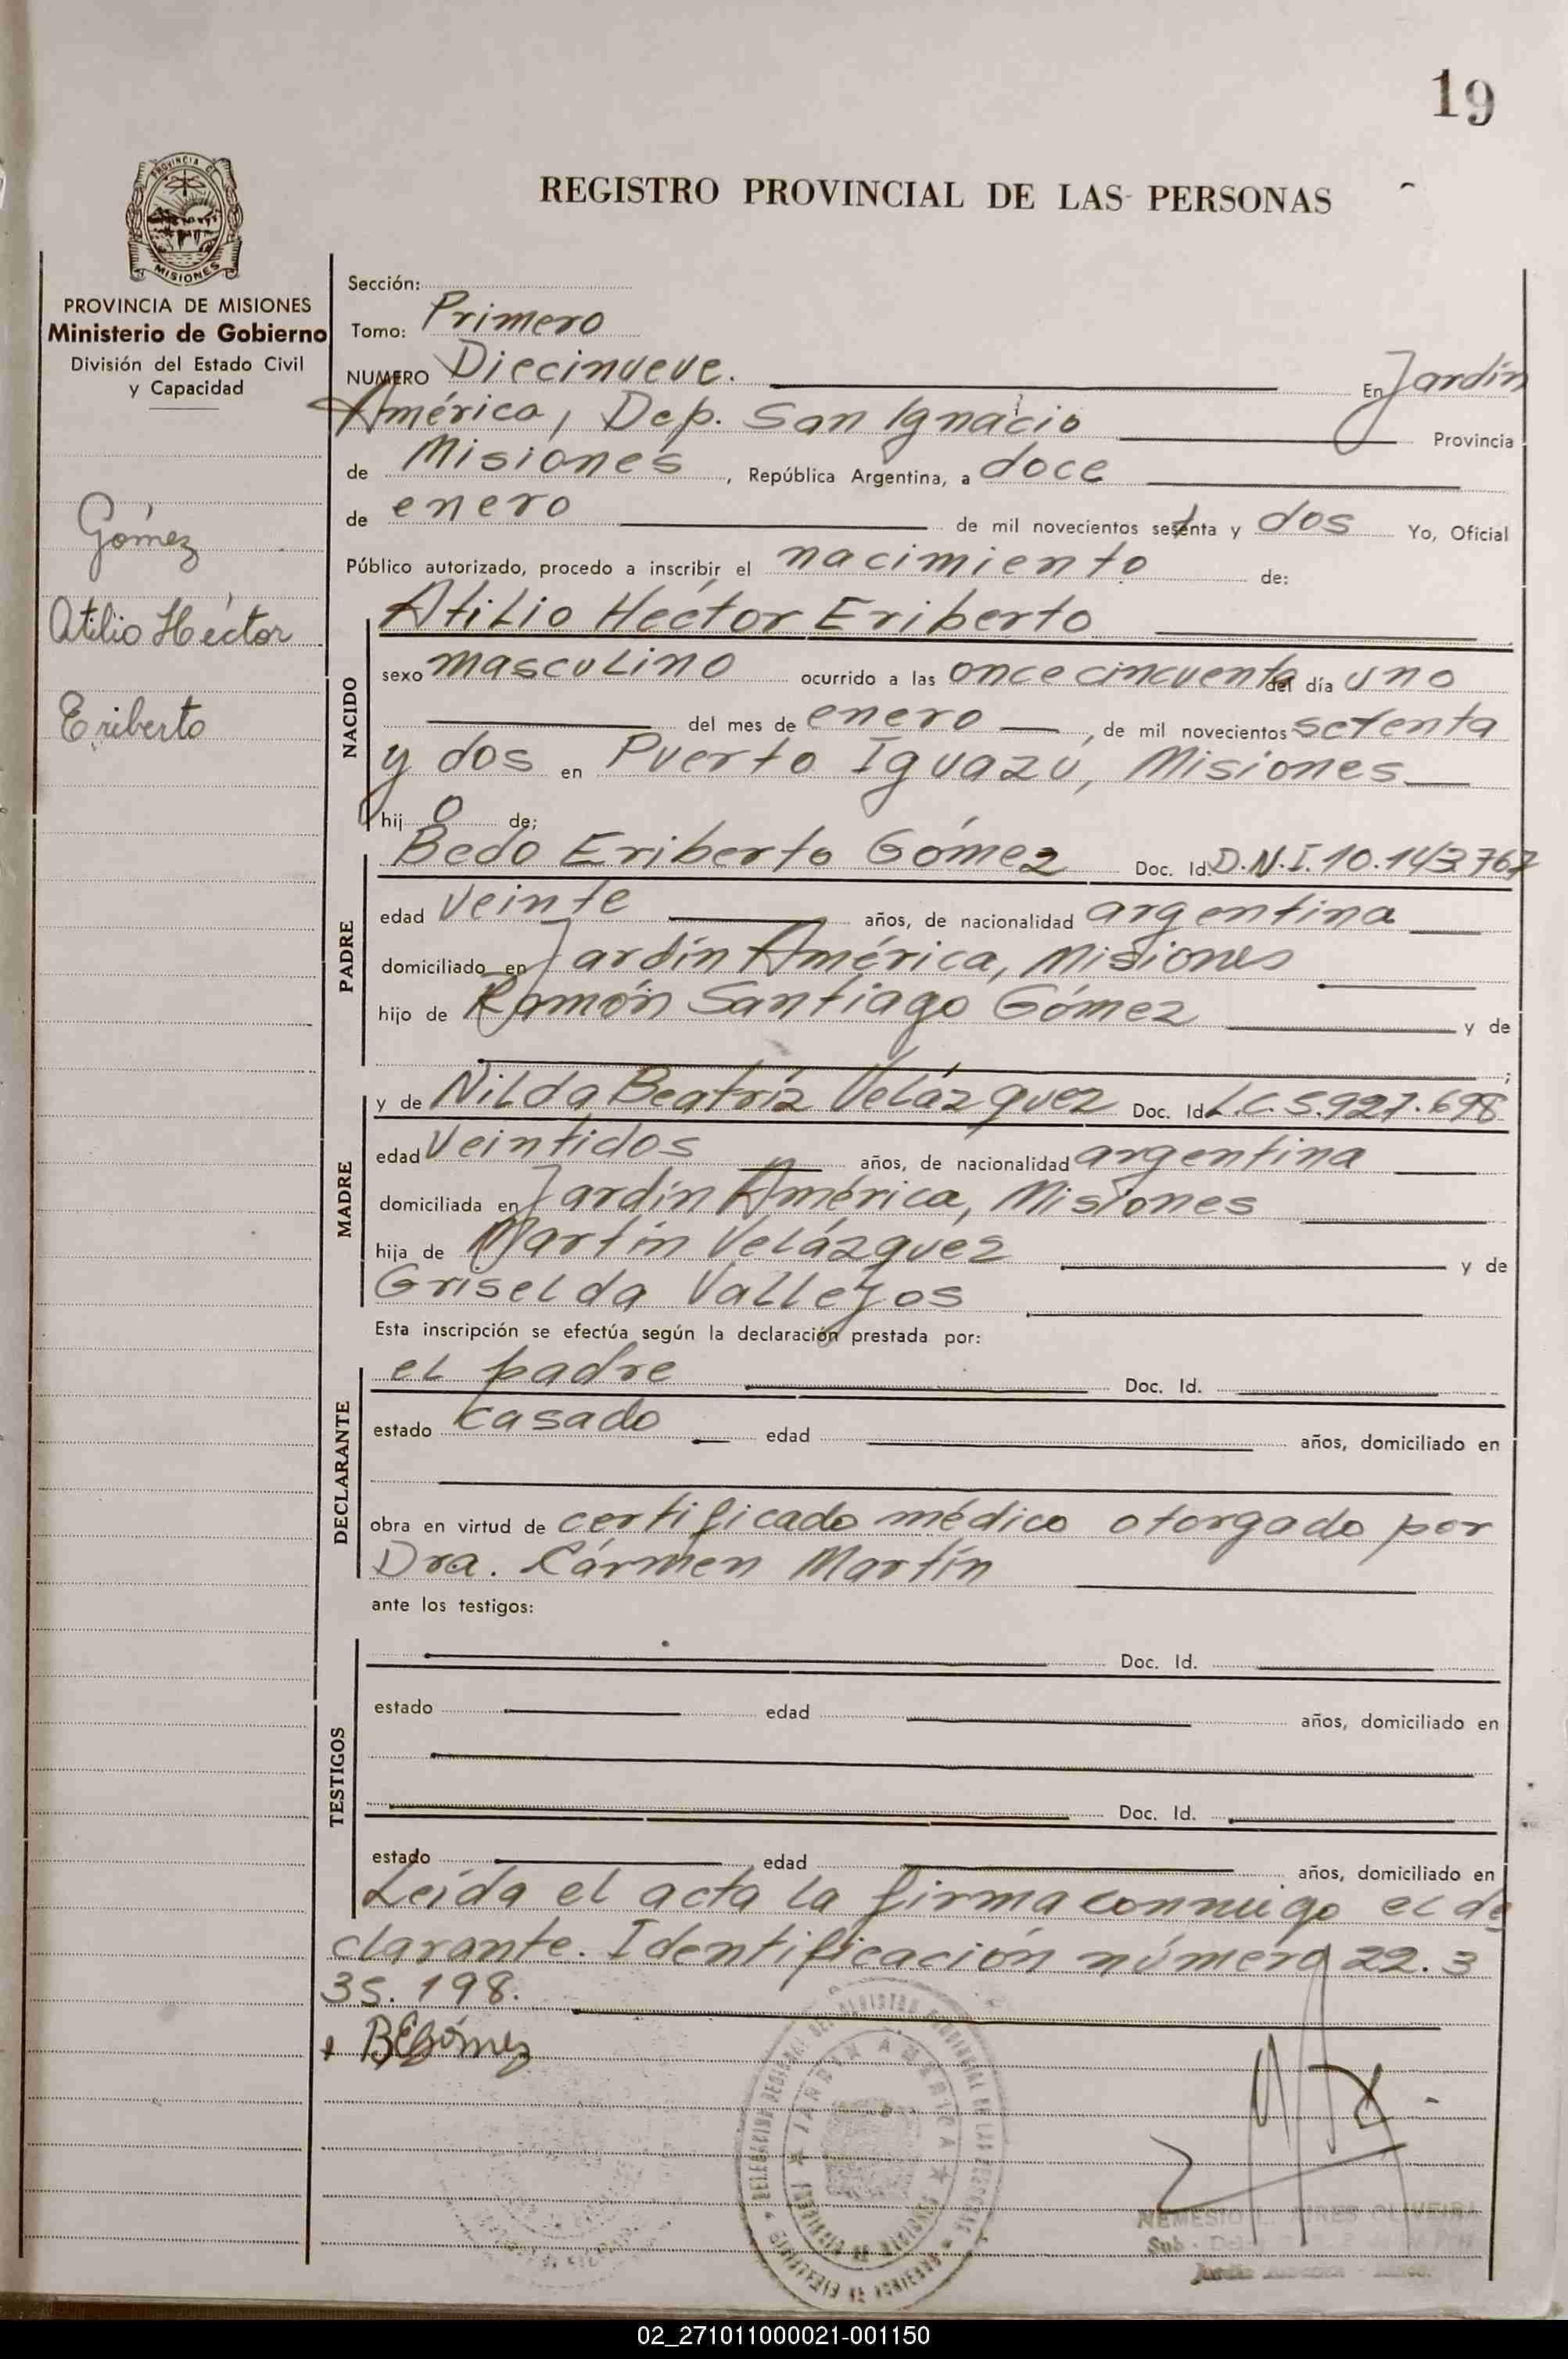 19
REGISTRO PROVINCIAL DE LAS PERSONAS
PROVINCIA DE MISIONES
Ministerio de Gobierno
División del Estado Civil
y Capacidad
Gómez
Atilio Héctor
Eriberto
Sección:
Tomo: Primero
NUMERO Diecinueve. En Jardín
América, Dep. San Ignacio Provincia
de Misiones, República Argentina, a doce
de enero de mil novecientos setenta y dos Yo, Oficial
Público autorizado, procedo a inscribir el nacimiento de:
NACIDO
Atilio Héctor Eriberto
sexo masculino ocurrido a las once cincuenta del día uno
del mes de enero, de mil novecientos setenta
y dos en Puerto Iguazú, Misiones
hijo de;
PADRE
Bedo Eriberto Gómez Doc. Id. D.N.I. 10.143.767
edad veinte años, de nacionalidad argentina
domiciliado en Jardín América, Misiones
hijo de Ramón Santiago Gómez y de
;
MADRE
y de Nilda Beatríz Velázquez Doc. Id. L.C. 5.927.698
edad veintidos años, de nacionalidad argentina
domiciliada en Jardín América, Misiones
hija de Martín Velázquez y de
Griselda Vallejos
Esta inscripción se efectúa según la declaración prestada por:
DECLARANTE
el padre Doc. Id.
estado casado edad años, domiciliado en
obra en virtud de certificado médico otorgado por
Dra. Cármen Martín
ante los testigos:
TESTIGOS
Doc. Id.
estado edad años, domiciliado en
Doc. Id.
estado edad años, domiciliado en
Leída el acta la firma conmigo el de
clarante. Identificación número 22.3
35.198.
BEGómez
JARDIN AMERICA
NEMESIO AIRES OLIVEIRA
02_271011000021-001150